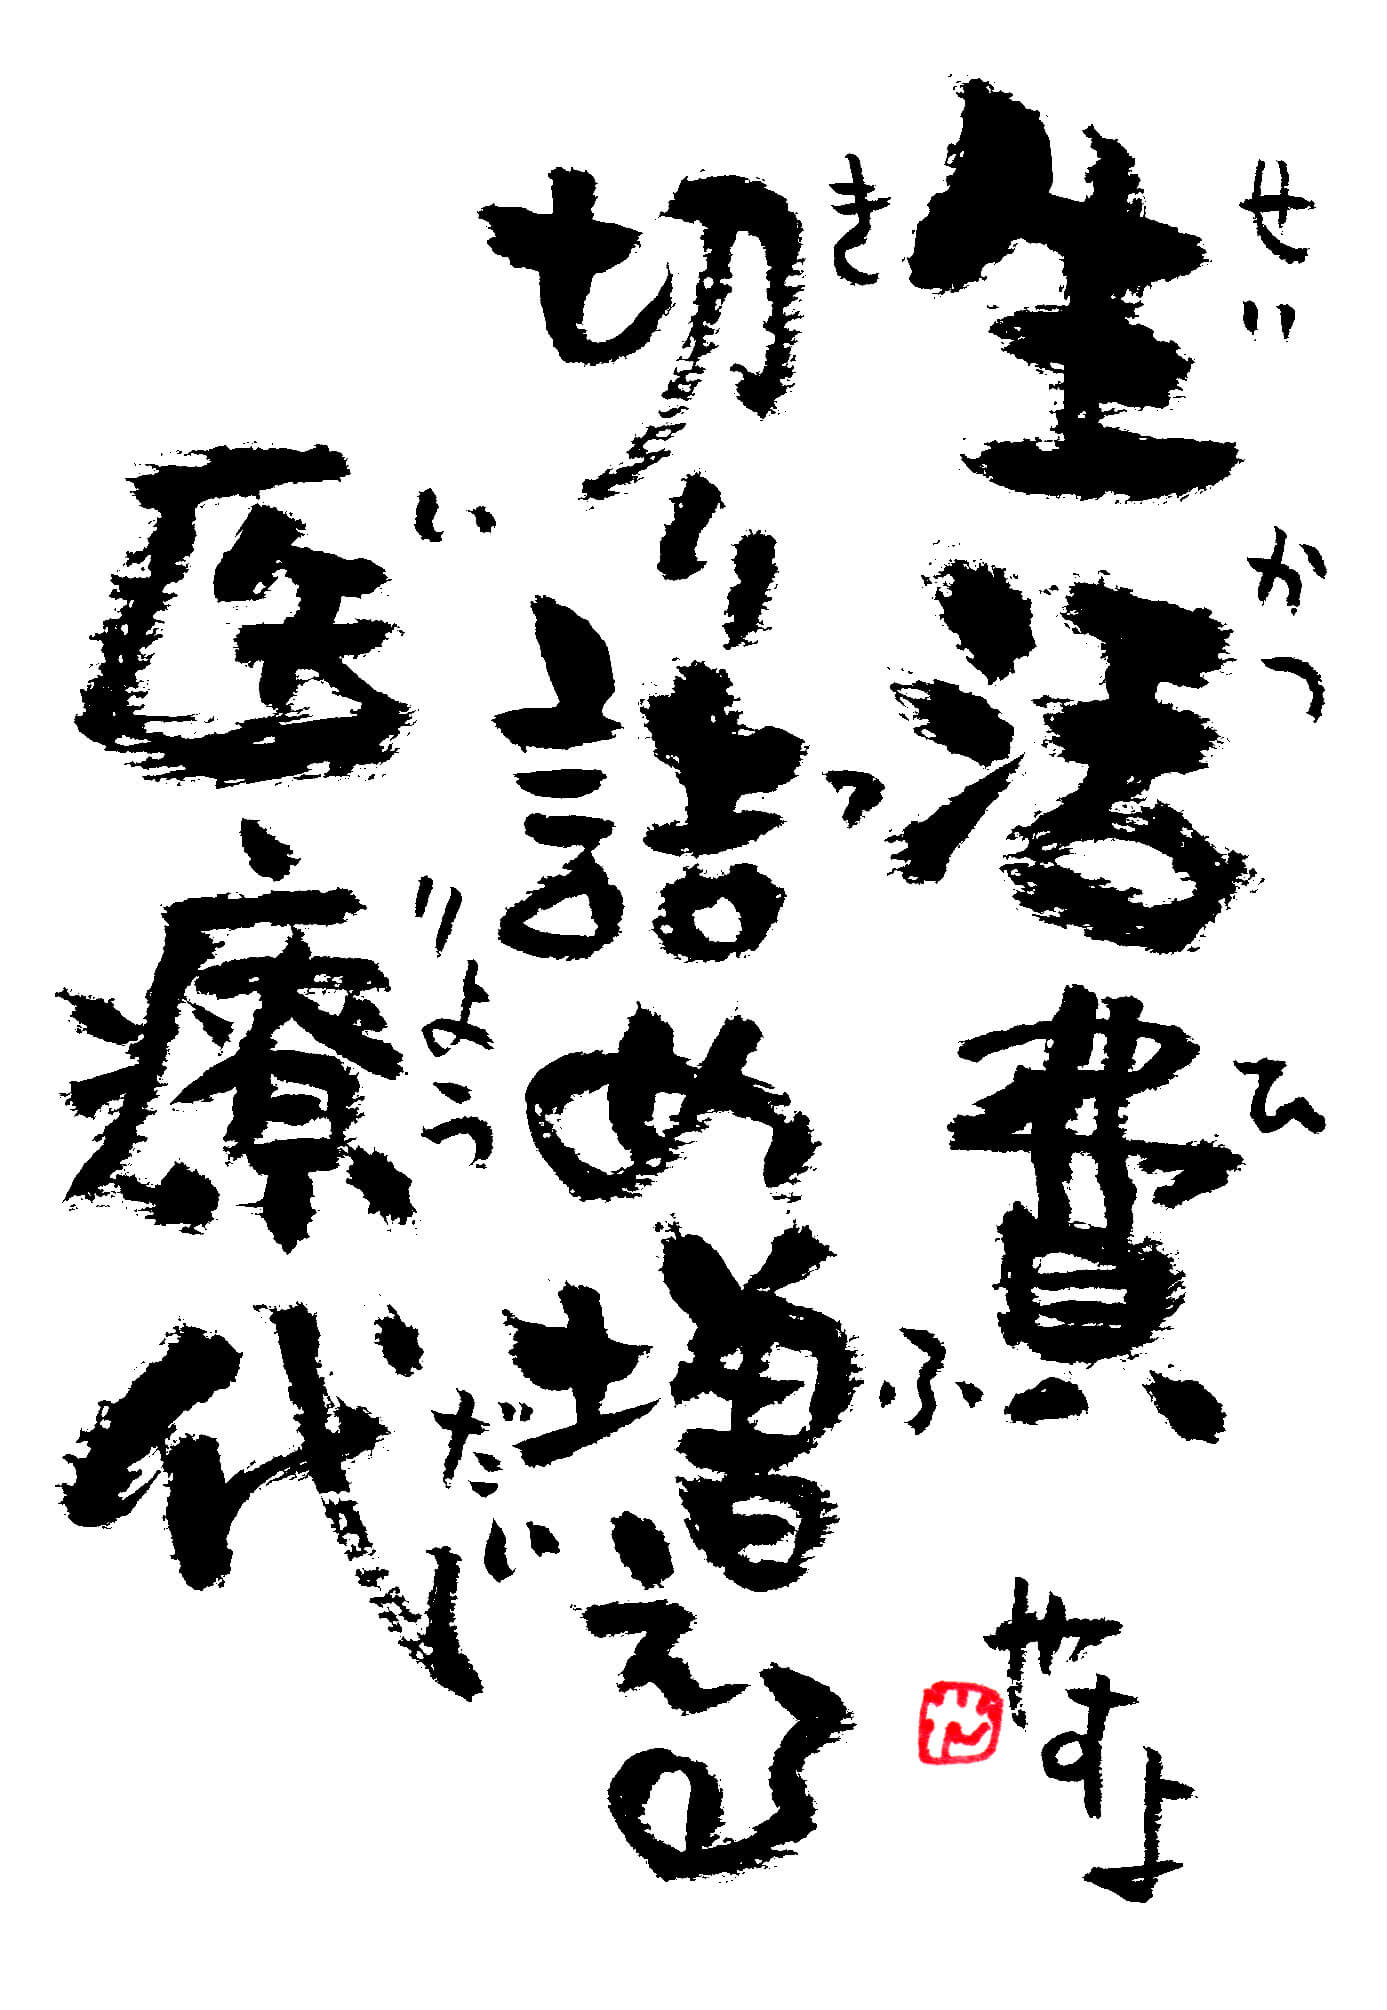 生活費
せいかつひ
切り詰め増える
きつふ
医療代
いりょうだい
やすよ